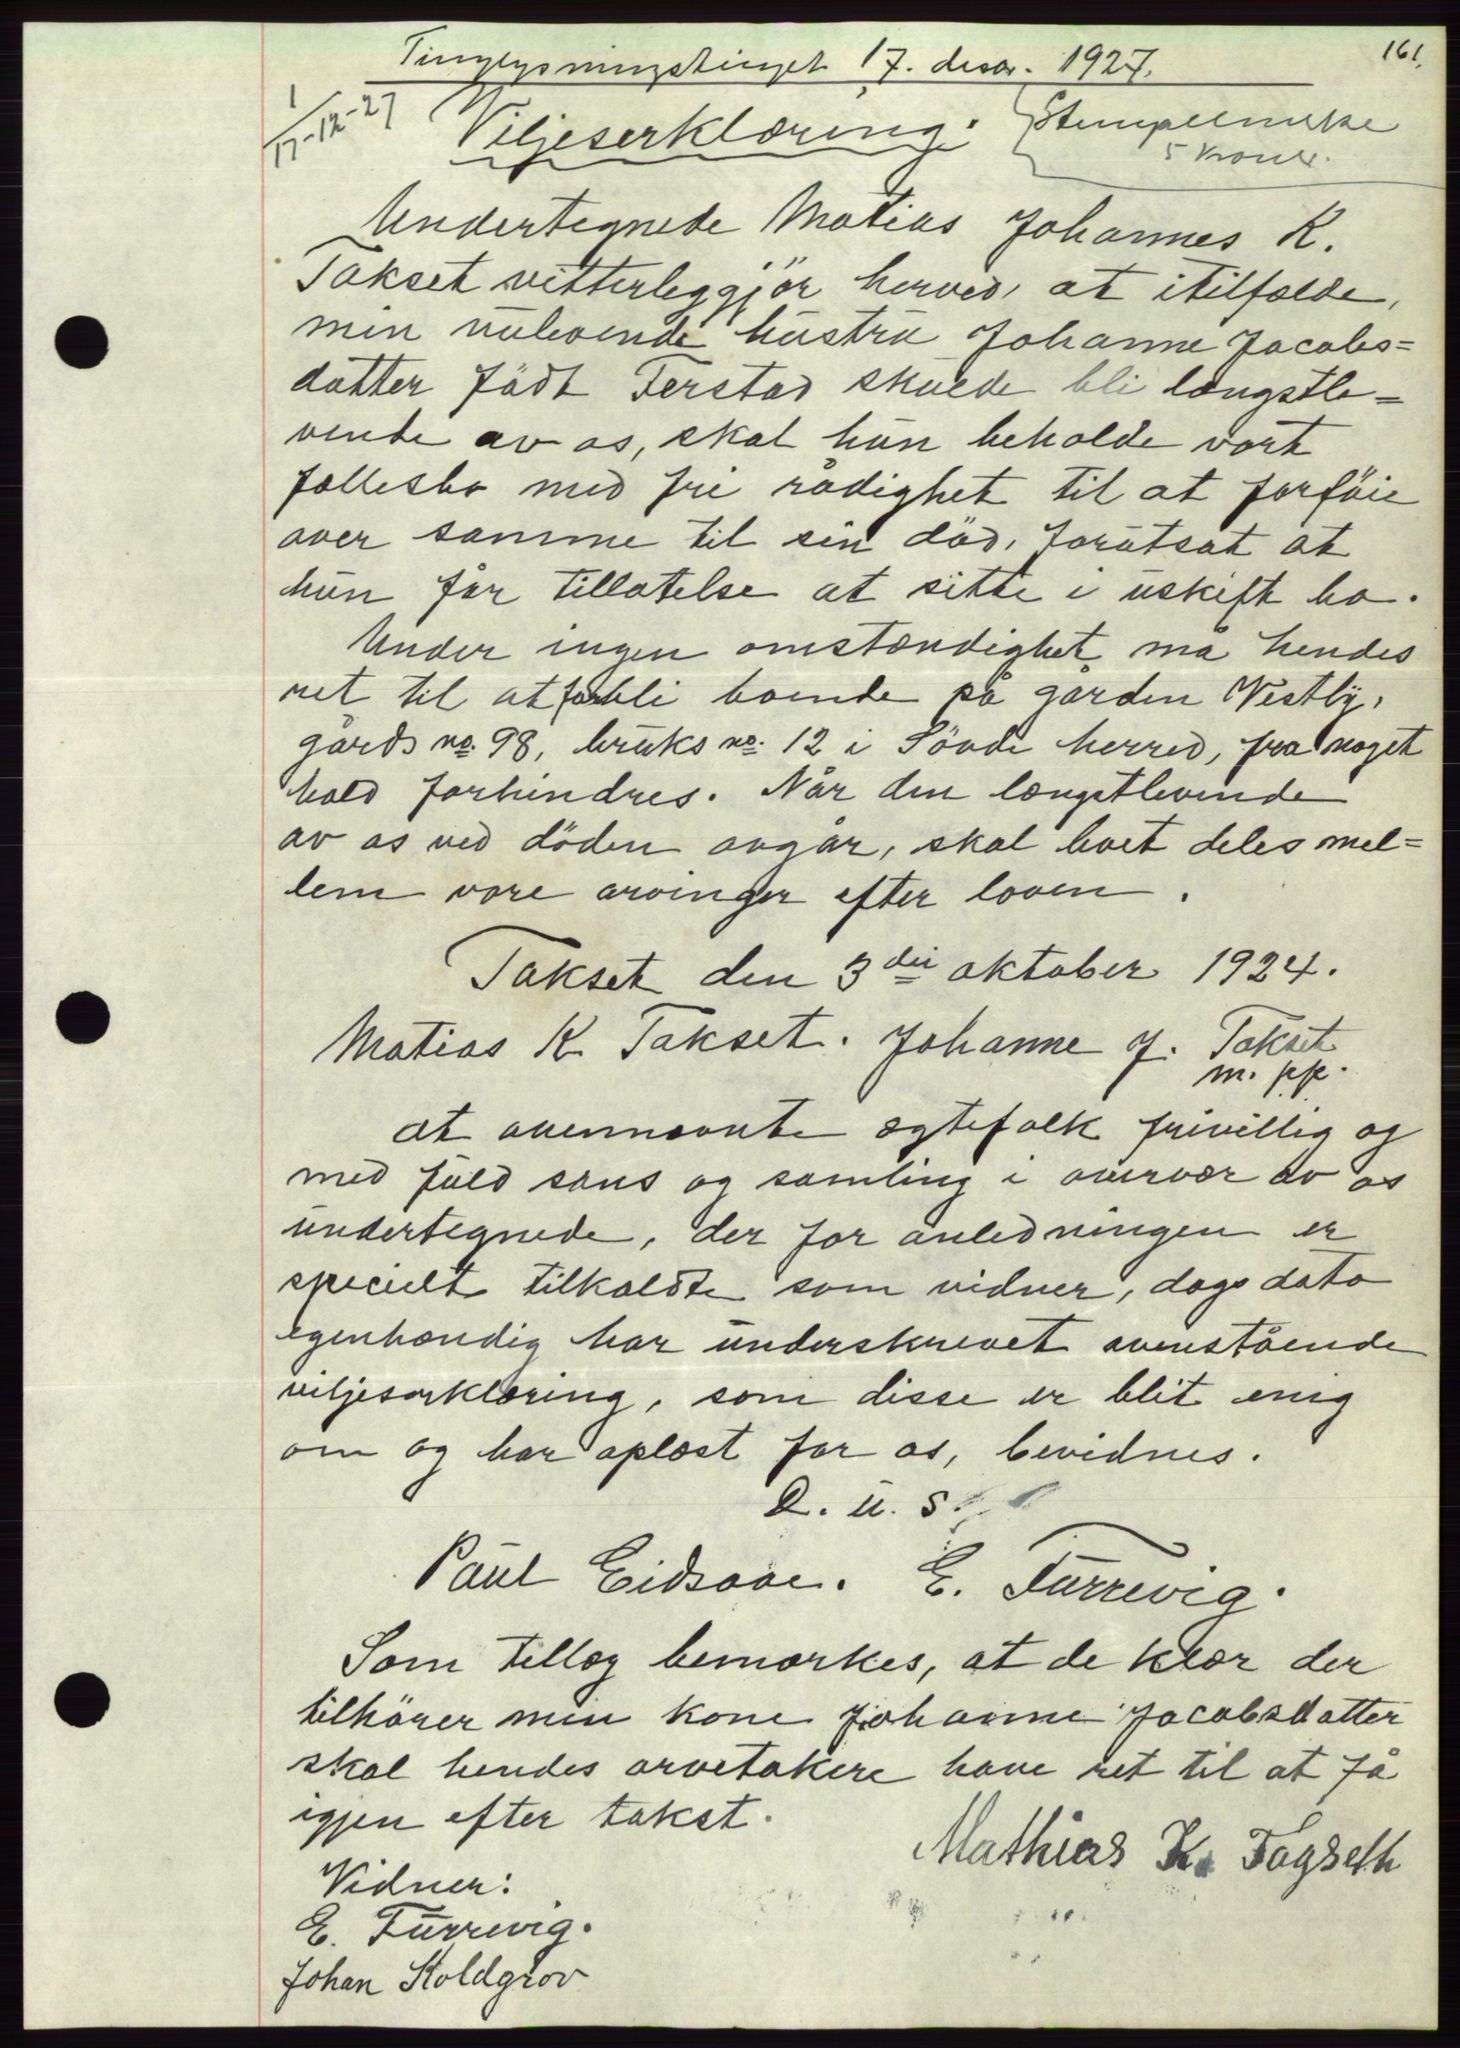 161.
Tinglysningstinget 17. decbr. 1927.
1/17-12-27
Viljeserklæring.
Stempelmerke
5 kroner.
Undertegnede Matias Johannes K.
Takset vitterleggjör herved, at itilfælde,
min nulevende hustru Johanne Jacobs=
datter född Ferstad skulde bli længstle=
vende av os, skal hun beholde vort
fællesbo med fri rådighet til at forföie
over samme til sin död, forutsat at
hun får tillatelse at sitte i uskift bo.
Under ingen omstændighet må hendes
ret til at forbli boende på gården Vestly,
gårds no. 98, bruks no. 12 i Sövde herred, fra noget
hold forhindres. Når den længstlevende
av os ved döden avgår, skal boet deles mel=
lem vore arvinger efter loven.
Takset den 3die oktober 1924.
Matias K Takset. Johanne J. Takset
m. p.p.
At ovennævnte ægtefolk frivillig og
med fuld sans og samling i overvær av os
undertegnede, der for anledningen er
specielt tilkaldte som vidner, dags dato
egenhændig har underskrevet ovenstående
viljeserklæring, som disse er blit enig
om og har oplæst for os, bevidnes.
D. u. s.
Paul Eidsaae. E. Furrevig.
Som tillæg bemærkes, at de klær der
tilhörer min kone Johanne Jacobsdatter
skal hendes arvetakere have ret til at få
igjen efter takst.
Mathias K. Tagseth
Vidner:
E. Furrevig.
Johan Koldgrov